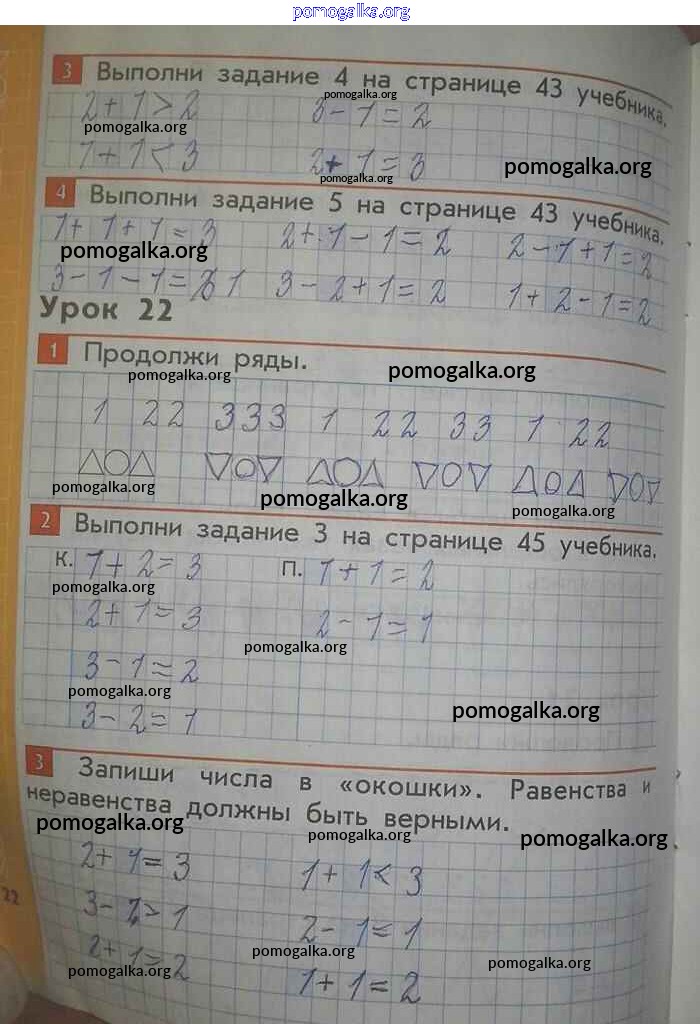 pomogalka.org
3 Выполни задание 4 на странице 43 учебника.
2 + 1 > 2 3 - 1 = 2
pomogalka.org pomogalka.org
1 + 1 < 3 2 + 1 = 3 pomogalka.org
pomogalka.org
4 Выполни задание 5 на странице 43 учебника.
1 + 1 + 1 = 3 2 + 1 - 1 = 2 2 - 1 + 1 = 2
pomogalka.org
3 - 1 - 1 = 1 3 - 2 + 1 = 2 1 + 2 - 1 = 2
Урок 22
1 Продолжи ряды.
pomogalka.org pomogalka.org
1 22 333 1 22 33 1 22
pomogalka.org pomogalka.org pomogalka.org
2 Выполни задание 3 на странице 45 учебника.
К. 1 + 2 = 3 П. 1 + 1 = 2
pomogalka.org
2 + 1 = 3 2 - 1 = 1
pomogalka.org
3 - 1 = 2
pomogalka.org pomogalka.org
3 - 2 = 1
3 Запиши числа в «окошки». Равенства и
неравенства должны быть верными.
pomogalka.org pomogalka.org pomogalka.org
2 + 1 = 3 1 + 1 < 3
22
3 - 1 > 1 2 - 1 = 1
pomogalka.org
2 + 1 = 2
pomogalka.org pomogalka.org
1 + 1 = 2